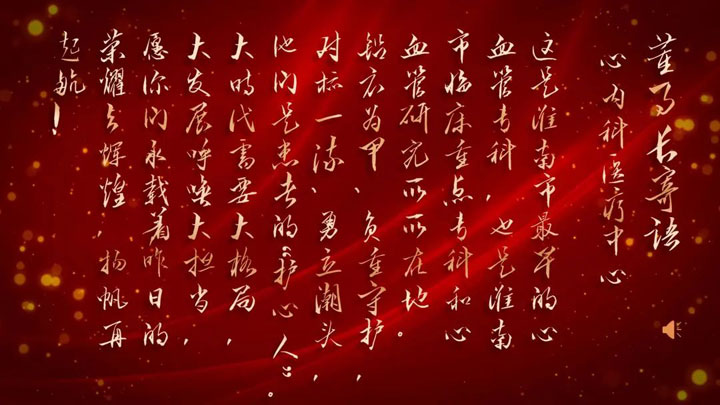 董事长寄语
心内科医疗中心
这是淮南市最早的心
血管专科，也是淮南
市临床重点专科和心
血管研究所所在地。
铅衣为甲、负重守护，
对标一流、勇立潮头，
他们是患者的“护心人”。
大时代需要大格局，
大发展呼唤大担当，
愿你们承载着昨日的
荣耀与辉煌，扬帆再
起航！